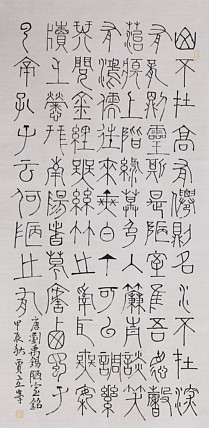 山不在高有僊則名水不在深
有龍則靈斯是陋室惟吾德馨
苔痕上階綠草色入簾青談笑
有鴻儒往來無白丁可以調素
琴閱金經無絲竹之亂耳無案
牘之勞形南陽諸葛廬西蜀子
雲亭孔子云何陋之有
唐劉禹錫陋室銘
甲辰秋賈立